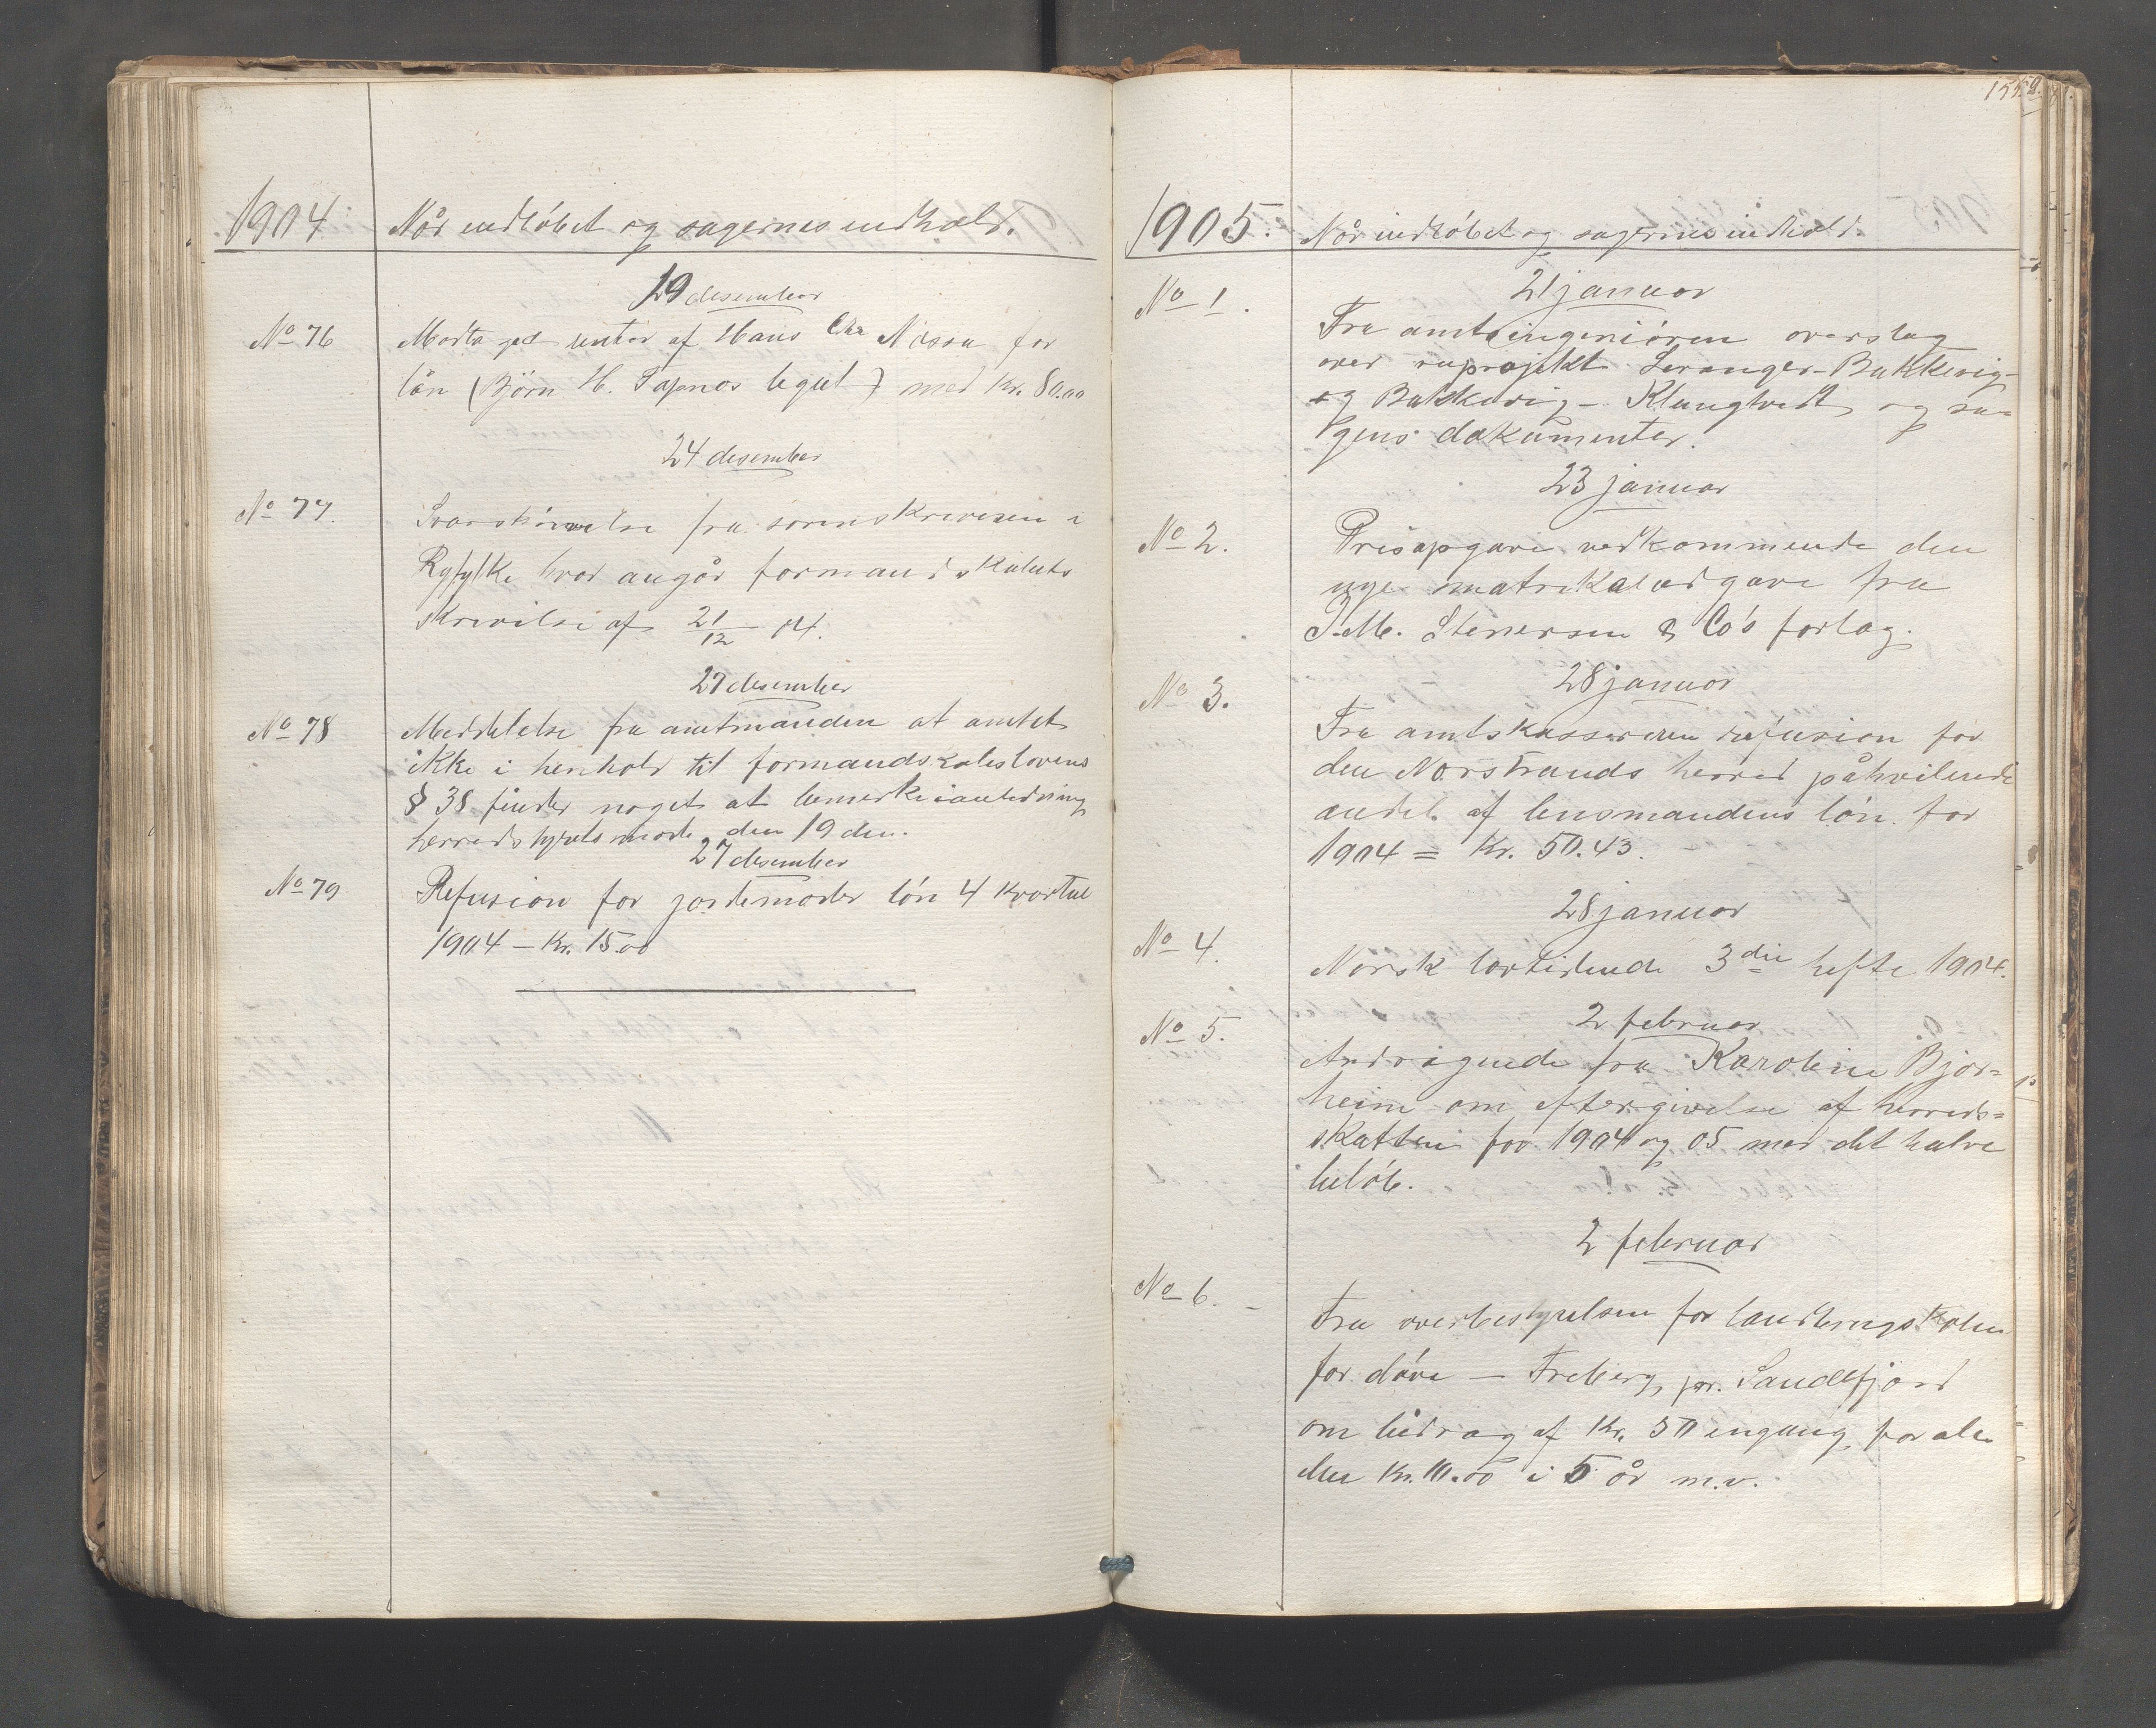 1904
Når indløbet og sagernes indhold.
19 desember
No 76
Modtaget renter af Hans Chr Nessa for
lån (Bjørn H. legat) med Kr. 80.00
24 desember
No 77.
Svarskrivelse fra sorenskriveren i
Ryfylke hvad angår formandskabets
skrivelse af 21/12 04.
27 desember
No 78
Meddelelse fra amtmanden at amtet
ikke i henhold til formandskabslovens
§ 38 finder noget at bemerke i anledning
herredstyrets møde den 19 den.
27 desember
No 79
Refusion for jordemoder løn 4 kvartal
1904 – Kr. 15.00
1905.
Når indløbet og sagernes indhold.
21 januar
No 1.
Fra amtsingeniøren overslag
over veiprojekt Leranger-Bakkevig
og Bakkevig – Klungtveit og sa-
gens dokumenter.
23 januar
No 2.
Prisopgave vedkommende den
nye matrikeludgave fra
J.M. Stenersen & Co's forlag.
28 januar
No 3.
Fra amtskassereren refusion for
den Norstrands herred påhvilende
andel af lensmandens løn for
1904 = Kr. 50.43.
28 januar
No 4.
Norsk lovtidende 3die hefte 1904.
2 februar
No 5.
Andragende fra Karoline Bjør=
heim om eftergivelse af herreds=
skatten for 1904 og 05 med det halve
beløb.
2 februar
No 6.
Fra overbestyrelsen for landbrugskolen
for døve – Freberg, pr. Sandefjord
om bidrag af Kr. 50 engang for ale
eller Kr. 10.00 i 5 år m.v.